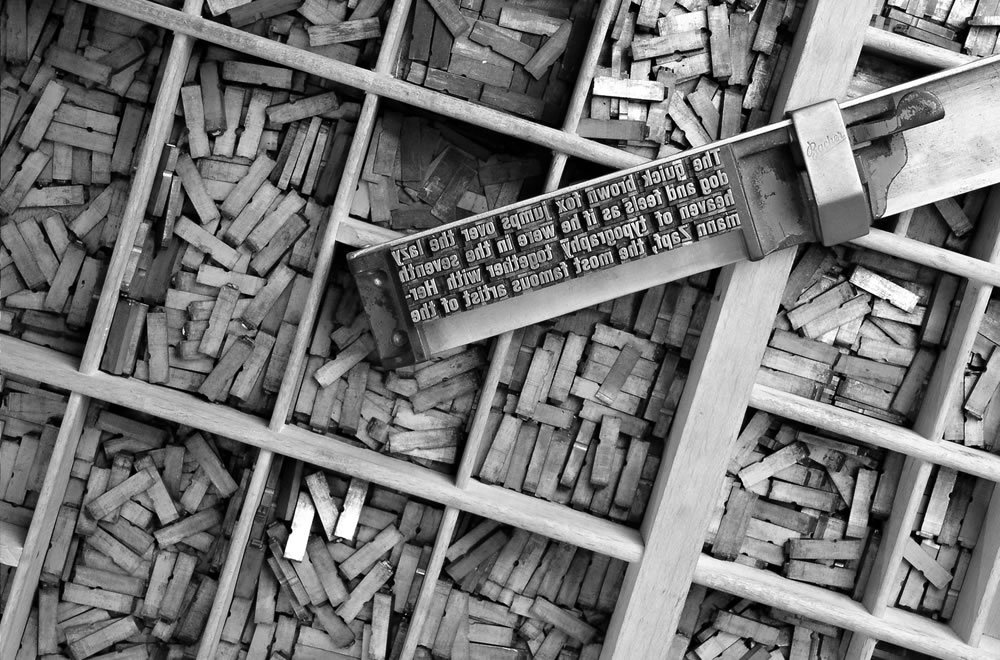 The quick brown fox jumps over the lazy
dog and feels as if he were in the seventh
heaven of typography together with Her-
mann Zapf, the most famous artist of the